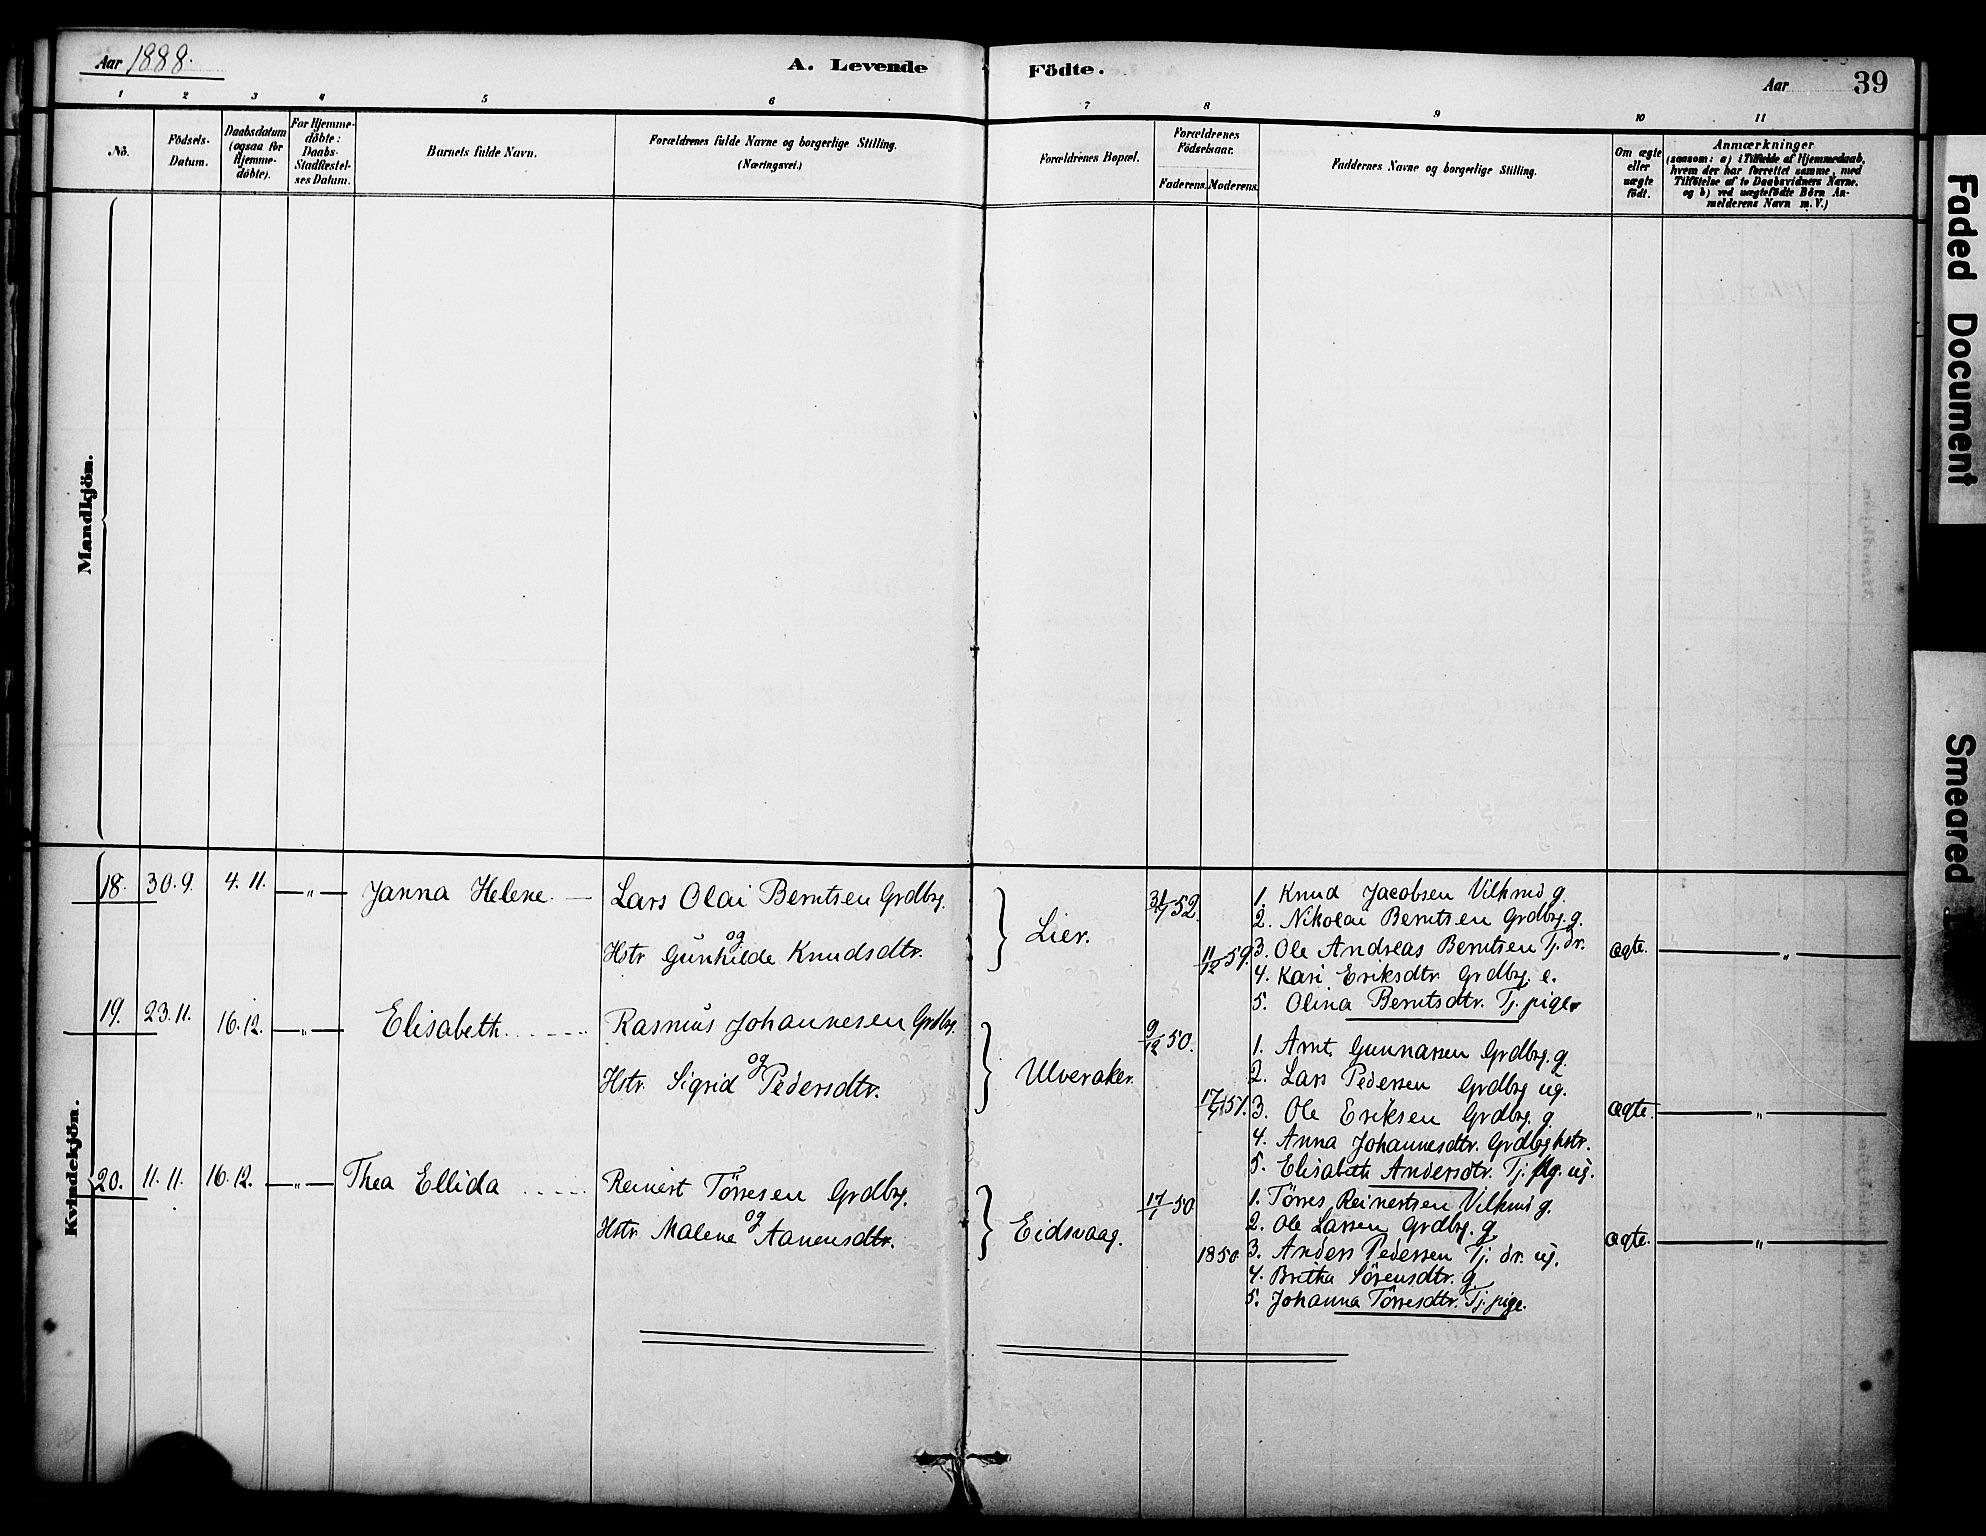 Aar 1888.
A. Levende Födte.
Aar 39
1 2 3 4 5 6 7 8 9 10 11
No.
Födsels-
Datum.
Daabsdatum
(ogsaa for
Hjemme-
döbte).
For Hjemme-
döbte:
Daabs-
Stadfæstel-
ses Datum.
Barnets fulde Navn.
Forældrenes fulde Navne og borgerlige Stilling.
(Næringsvei.)
Forældrenes Bopæl.
Forældrenes
Födselsaar.
Faderens. Moderens.
Faddernes Navne og borgerlige Stilling.
Om ægte
eller
uægte
födt.
Anmærkninger
(saasom: a) i Tilfælde af Hjemmedaab,
hvem der har forrettet samme, med
Tilföielse af to Daabsvidners Navne,
og b) ved uægtefödte Börn An-
melderens Navn m. V.)
Mandkjön.
Kvindekjön.
18. 30.9. 4.11. —"— Janna Helene. — Lars Olai Berntsen Grdbrg.
og
Hstr Gunhilde Knudsdtr.
Lier.
31/7 52.
11/12 59.
1. Knud Jacobsen Vilkmd g.
2. Nikolai Berntsen Grdbrg. g.
3. Ole Andreas Berntsen Tj. dr.
4. Kari Eriksdtr. Grdbrg. e.
5. Olina Berntsdtr. Tj. pige
ægte. — " —
19. 23.11. 16.12. —"— Elisabeth. Rasmus Johannesen Grdbrg.
og
Hstr. Sigrid Pedersdtr.
Ulveraker.
9/12 50.
1. Arnt Gunnarsen Grdbrg. g.
2. Lars Pedersen Grdbrg ug.
3. Ole Eriksen Grdbrg. g.
4. Anna Johannesdtr. Grdbrg hstr.
5. Elisabeth Andersdtr. Tj. pg. ug.
ægte. — " —
20. 11.11. 16.12. —"— Thea Ellida Reinert Törresen Grdbrg.
og
Hstr. Malene Aanensdtr.
Eidsvaag.
17/1 50
1850
1. Törres Reinertsen Vilkmd g.
2. Ole Larsen Grdbrg. g.
3. Anders Pedersen Tj. dr. ug.
4. Britha Sörensdtr. g.
5. Johanna Törresdtr. Tj. pige.
ægte. — " —
Faded Document
Smeared